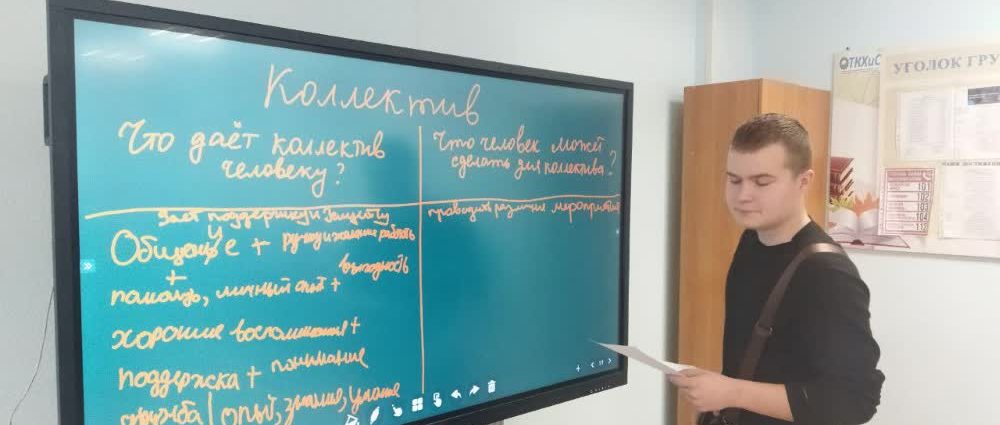 Коллектив
Что даёт коллектив
человеку?
Что человек может
сделать для колектива?
даёт поддержку и защиту
Общение + желание работать
+ выгодность
помощь, личный опыт +
хорошие воспоминания +
поддержка + понимание
дружба | опыт, знания, умение
проводить различные мероприятия
ТКХиС
УГОЛОК ГРУ
101
102
103
104
112